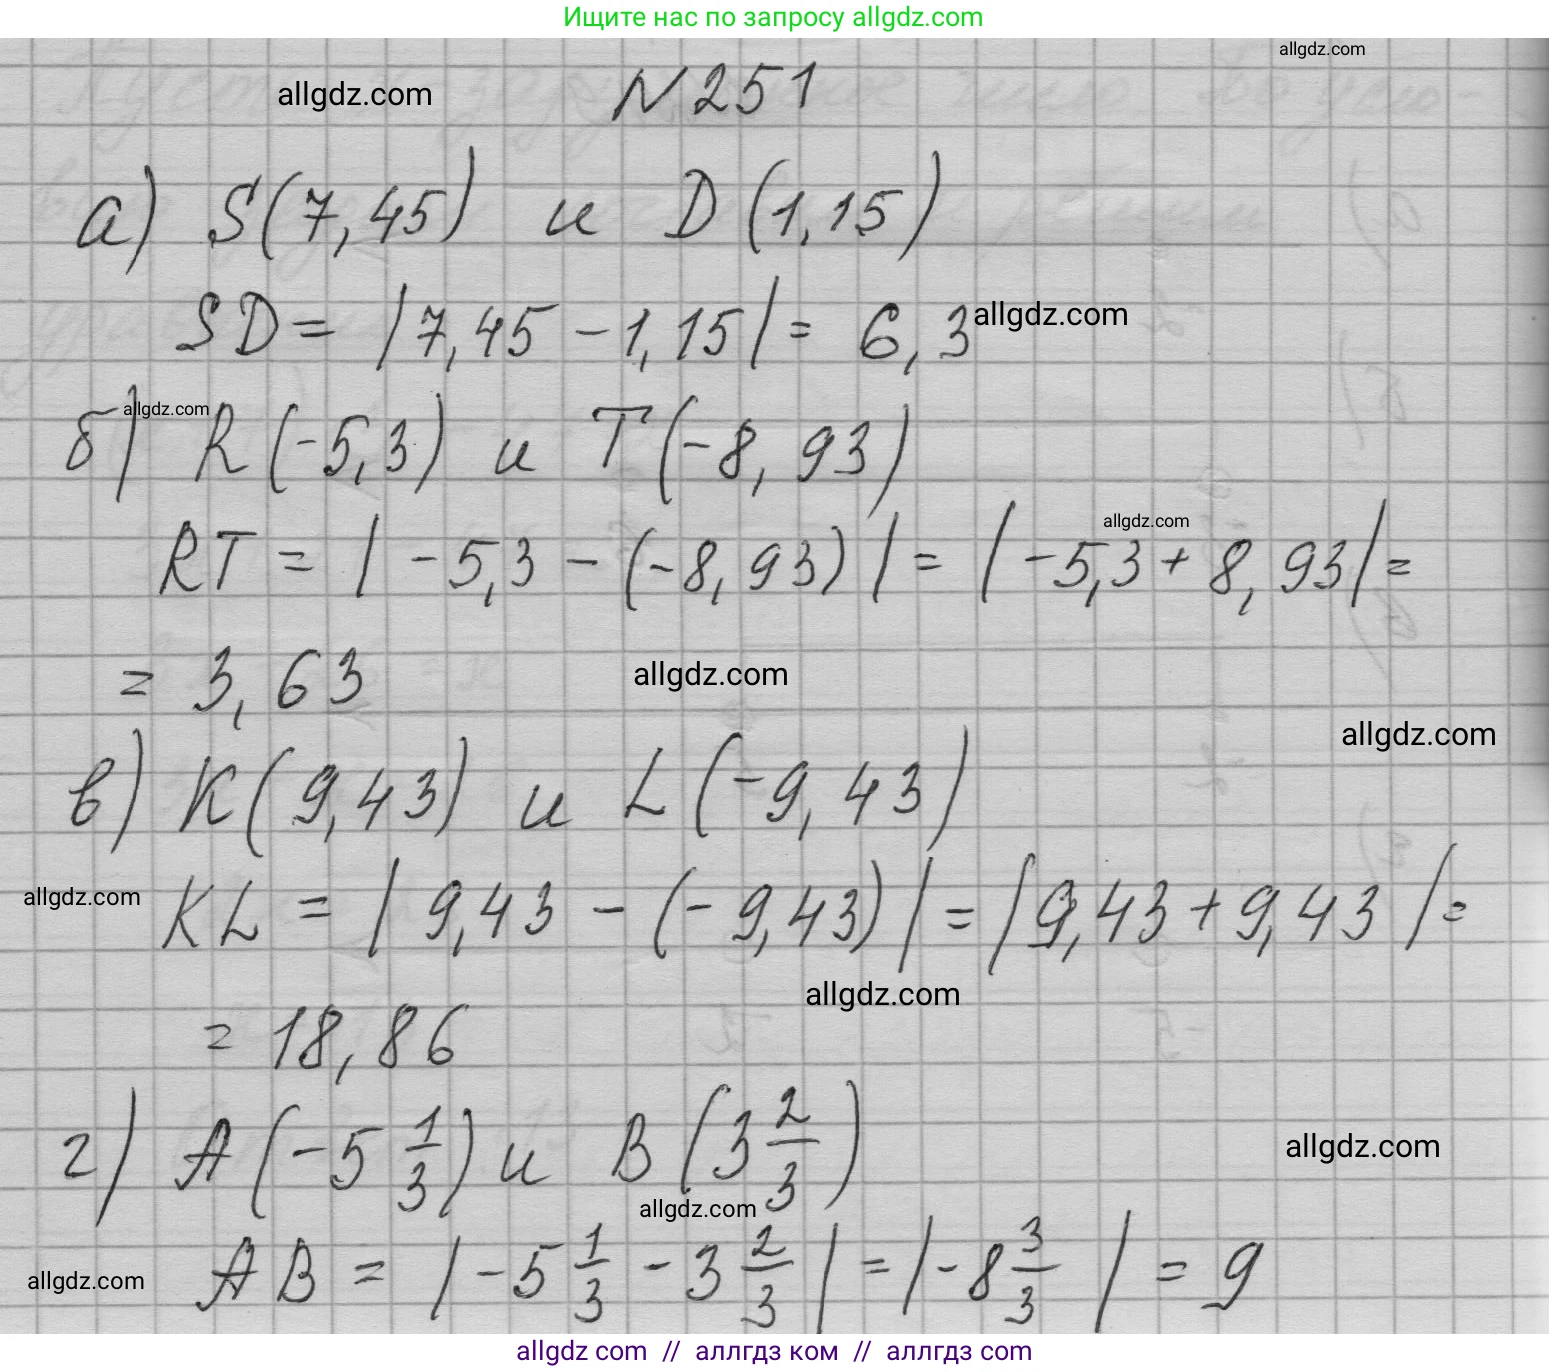 Ищите нас по запросу allgdz.com
allgdz.com
allgdz.com
N 251
а) S(7,45) и D(1,15)
SD = |7,45 - 1,15| = 6,3
allgdz.com
allgdz.com
б) R(-5,3) и T(-8,93)
allgdz.com
RT = |-5,3 - (-8,93)| = |-5,3 + 8,93| =
= 3,63
allgdz.com
allgdz.com
в) K(9,43) и L(-9,43)
allgdz.com
KL = |9,43 - (-9,43)| = |9,43 + 9,43| =
allgdz.com
= 18,86
г) A(-5 1/3) и B(3 2/3)
allgdz.com
allgdz.com
allgdz.com
AB = |-5 1/3 - 3 2/3| = |-8 3/3| = 9
allgdz com // аллгдз ком // аллгдз com